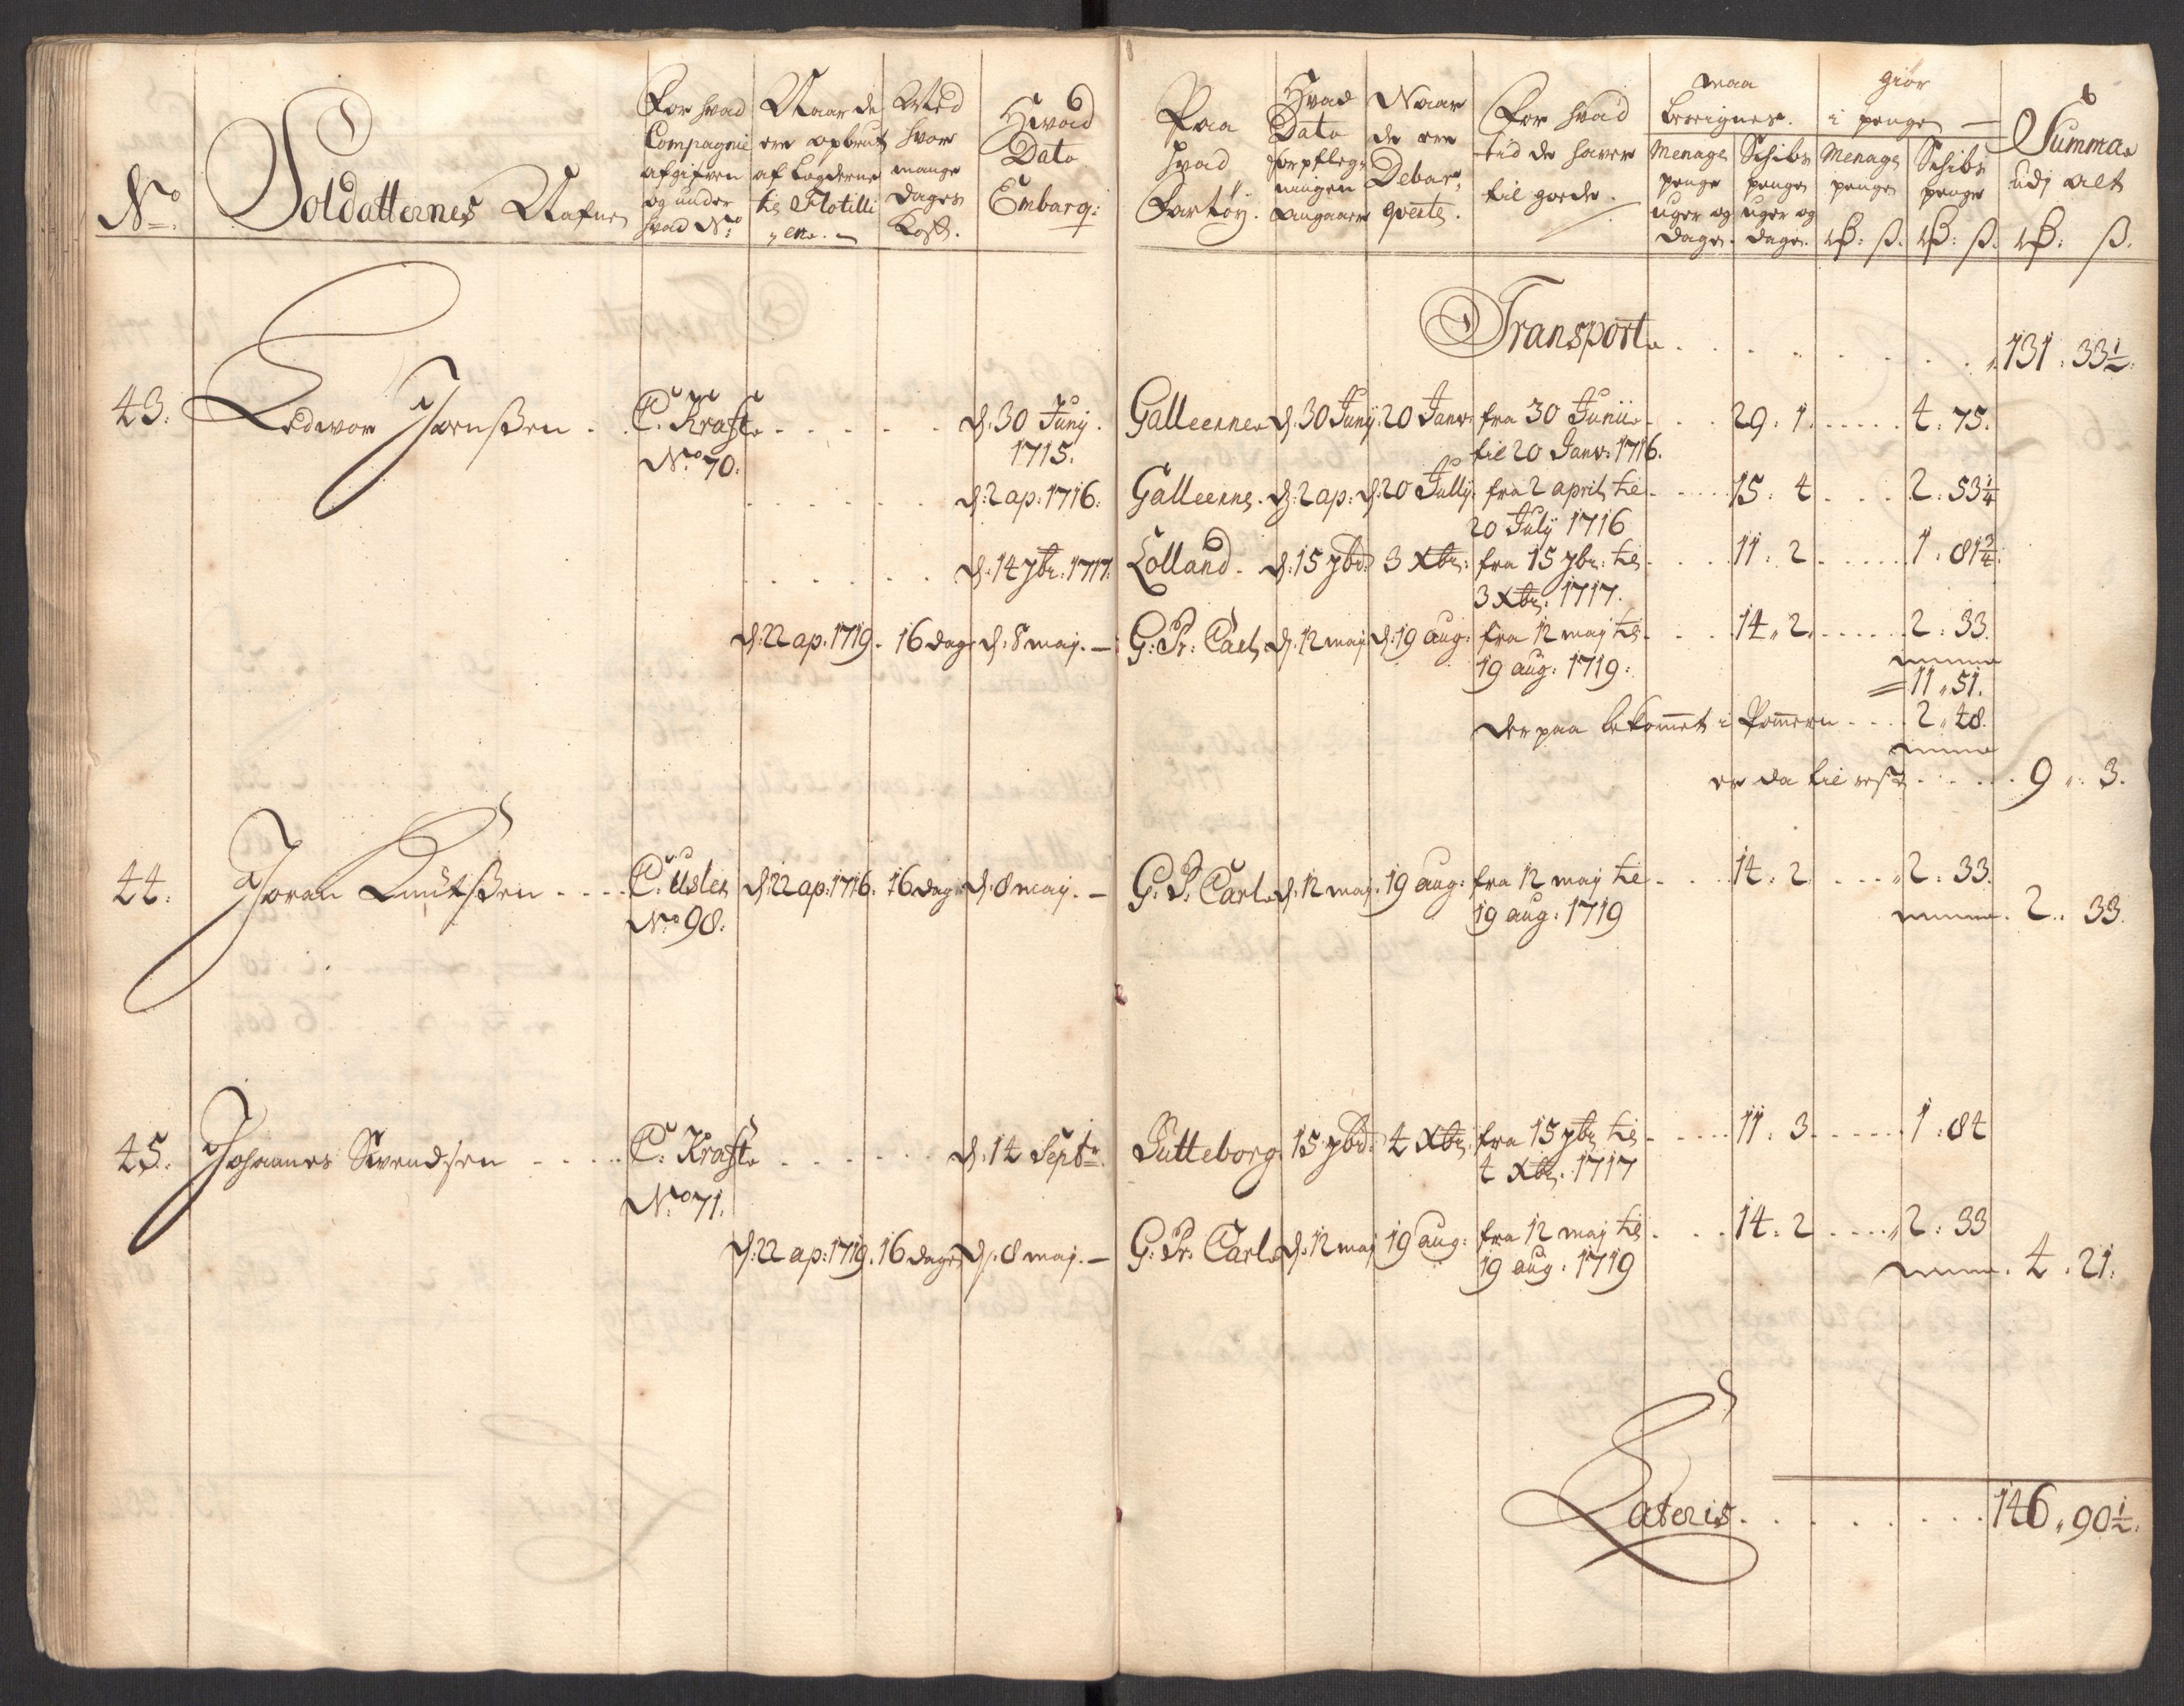 No.
Soldatternes Nafne
For hvad
Compagnie
afgifven
og under
hvad No:
Naar de
ere opbrut
af Lægderne
til Flotilli
,, en.
Med
hvor
mange
Dages
Kost.
Hvad
Dato
Embarq:
Paa
hvad
Fartøy.
Hvad
Dato
forpfleg-
ningen
angaaer
Naar
de ere
Debar-
qverte.
For hvad
tid de haver
til gode.
maa
bereignes.
Menage
penge
uger og
Dage.
Schibs
penge
uger og
dage.
giør
i penge
Menage
penge
rß: ß.
Schibs
penge
rß: ß.
Summa
udj alt
rß: ß.
Transport . . . . . 131. 33 1/2.
43. Jørnßen . C. Kraft . . . . d. 30 Junij. Galleerne d. 30 Junij. 20 Janv: fra 30 Junii . . 29. 1. . . . 4. 75.
No. 70. 1715. til 20 Janv: 1716.
. . . . d. 2 ap: 1716. Galleerne. d. 2 ap: d. 20 Julij. fra 2 april til . . . 15. 4 . . . 2. 53 1/4
20 Julij 1716
. . . . d. 14 7br: 1717. Lolland. d. 15 7br: 3 Xbr: fra 15 7br: til . . . 11. 2 . . . 1. 81 3/4.
3 Xbr. 1717.
d. 22 ap: 1719. 16 dage d. 8 maj. — G: Pr: Carl. d. 12 maj d. 19 aug: fra 12 maj til . . . 14. 2. . . . 2. 33.
19 aug: 1719:
11. 51.
der paa bekommet i Pommern . . . 2. 48.
er da til rest . . . . 9. 3.
44. Joran Knutßen . . . C. Usler d. 22 ap: 1716. 16 dage d. 8 maij. — G. P. Carl. d. 12 maj. 19 aug: fra 12 maj til . . . 14. 2 . . . 2. 33.
No. 98. 19 aug. 1719 2. 33.
45. Johannes Svendsen . . . C. Kraft . . . . d. 14 Septr. Gutteborg. 15 7br: 4 Xbr. fra 15 7br til . . . 11. 3 . . . 1. 84
No. 71. 4 Xbr. 1717
d. 22 ap: 1719. 16 dage d. 8 maj. — G. Pr. Carl. d. 12 maj 19 aug: fra 12 maj til . . . 14. 2 . . . 2. 33
19 aug. 1719 4. 21.
Lateris. . . . . . . 146. 90 1/2.